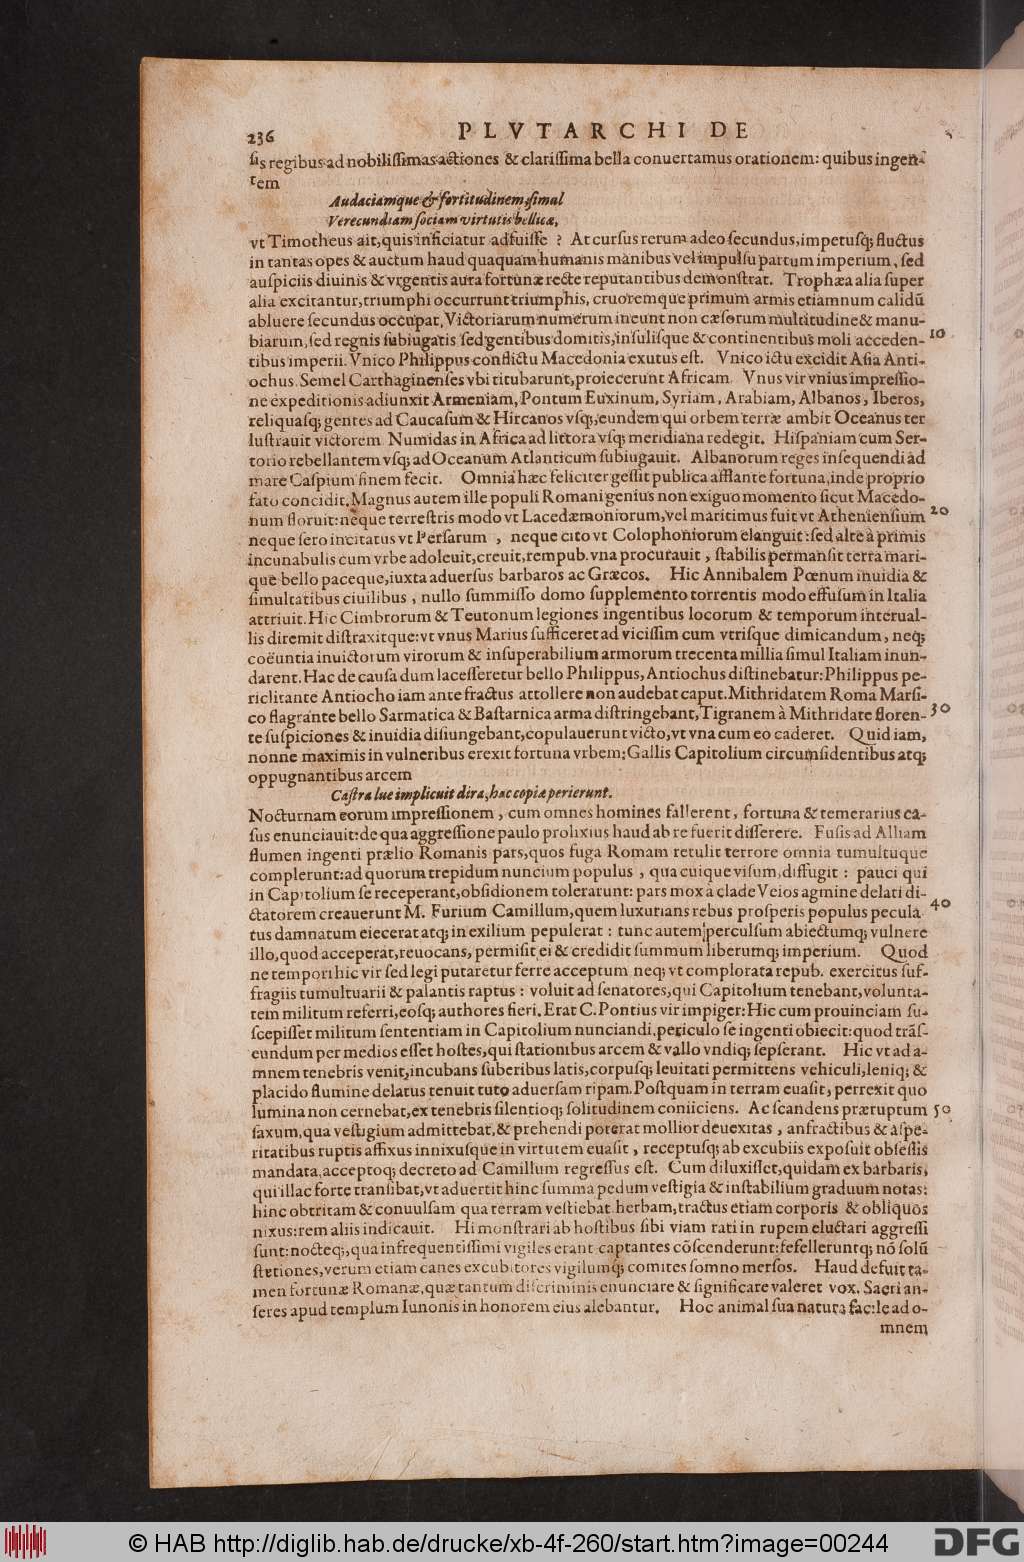 236
PLVTARCHI DE
sis regibus ad nobilissimas actiones & clarissima bella conuertamus orationem: quibus ingen-
tem
Audaciamque & fortitudinem, simal
Verecundiam sociam virtutis bellicæ,
vt Timotheus ait, quis inficiatur adfuisse ? At cursus rerum adeo secundus, impetusq; fluctus
in tantas opes & auctum haud quaquam humanis manibus vel impulsu partum imperium, sed
auspiciis diuinis & vrgentis aura fortunæ recte reputantibus demonstrat. Trophæa alia super
alia excitantur, triumphi occurrunt triumphis, cruoremque primum armis etiamnum calidū
abluere secundus occupat. Victoriarum numerum ineunt non cæsorum multitudine & manu-
biarum, sed regnis subiugatis sed gentibus domitis, insulisque & continentibus moli acceden- 10
tibus imperii. Vnico Philippus conflictu Macedonia exutus est. Vnico ictu excidit Asia Anti-
ochus. Semel Carthaginenses vbi titubarunt, proiecerunt Africam. Vnus vir vnius impressio-
ne expeditionis adiunxit Armeniam, Pontum Euxinum, Syriam, Arabiam, Albanos, Iberos,
reliquasq; gentes ad Caucasum & Hircanos vsq;, eundem qui orbem terræ ambit Oceanus ter
lustrauit victorem. Numidas in Africa ad littora vsq; meridiana redegit. Hispaniam cum Ser-
torio rebellantem vsq; ad Oceanum Atlanticum subiugauit. Albanorum reges insequendi ad
mare Caspium finem fecit. Omnia hæc feliciter gessit publica afflante fortuna, inde proprio
fato concidit. Magnus autem ille populi Romani genius non exiguo momento sicut Macedo-
num floruit: neque terrestris modo vt Lacedæmoniorum, vel maritimus fuit vt Atheniensium 20
neque sero incitatus vt Persarum , neque cito vt Colophoniorum elanguit: sed alte à primis
incunabulis cum vrbe adoleuit, creuit, rempub. vna procurauit , stabilis permansit terra mari-
que bello paceque, iuxta aduersus barbaros ac Græcos. Hic Annibalem Pœnum inuidia &
simultatibus ciuilibus , nullo summisso domo supplemento torrentis modo effusum in Italia
attriuit. Hic Cimbrorum & Teutonum legiones ingentibus locorum & temporum interual-
lis diremit distraxitque: vt vnus Marius sufficeret ad vicissim cum vtrisque dimicandum, neq;
coëuntia inuictorum virorum & insuperabilium armorum trecenta millia simul Italiam inun-
darent. Hac de causa dum lacesseretur bello Philippus, Antiochus distinebatur: Philippus pe-
riclitante Antiocho iam ante fractus attollere non audebat caput. Mithridatem Roma Marsi-
co flagrante bello Sarmatica & Bastarnica arma distringebant, Tigranem à Mithridate floren- 30
te suspiciones & inuidia disiungebant, copulauerunt victo, vt vna cum eo caderet. Quid iam,
nonne maximis in vulneribus erexit fortuna vrbem; Gallis Capitolium circumsidentibus atq;
oppugnantibus arcem
Castra lue implicuit dira, hac copiæ perierunt.
Nocturnam eorum impressionem , cum omnes homines fallerent, fortuna & temerarius ca-
sus enunciauit: de qua aggressione paulo prolixius haud ab re fuerit disserere. Fusis ad Alliam
flumen ingenti prælio Romanis pars, quos fuga Romam retulit terrore omnia tumultuque
complerunt: ad quorum trepidum nuncium populus , qua cuique visum, diffugit : pauci qui
in Capitolium se receperant, obsidionem tolerarunt: pars mox à clade Veios agmine delati di-
ctatorem creauerunt M. Furium Camillum, quem luxurians rebus prosperis populus pecula 40
tus damnatum eiecerat atq; in exilium pepulerat : tunc autem perculsum abiectumq; vulnere
illo, quod acceperat, reuocans, permisit ei & credidit summum liberumq; imperium. Quod
ne tempori hic vir sed legi putaretur ferre acceptum neq; vt complorata repub. exercitus suf-
fragiis tumultuarii & palantis raptus : voluit ad senatores, qui Capitolium tenebant, volunta-
tem militum referri, eosq; authores fieri. Erat C. Pontius vir impiger: Hic cum prouinciam su-
scepisset militum sententiam in Capitolium nunciandi, periculo se ingenti obiecit: quod trās-
eundum per medios esset hostes, qui stationibus arcem & vallo vndiq; sepserant. Hic vt ad a-
mnem tenebris venit, incubans suberibus latis, corpusq; leuitati permittens vehiculi, leniq; &
placido flumine delatus tenuit tuto aduersam ripam. Postquam in terram euasit, perrexit quo
lumina non cernebat, ex tenebris silentioq; solitudinem coniiciens. Ac scandens præruptum 50
saxum, qua vestigium admittebat, & prehendi poterat mollior deuexitas , anfractibus & aspe-
ritatibus ruptis affixus innixusque in virtutem euasit , receptusq; ab excubiis exposuit obsessis
mandata, acceptoq; decreto ad Camillum regressus est. Cum diluxisset, quidam ex barbaris,
qui illac forte transibat, vt aduertit hinc summa pedum vestigia & instabilium graduum notas:
hinc obtritam & conuulsam qua terram vestiebat herbam, tractus etiam corporis & obliquos
nixus: rem aliis indicauit. Hi monstrari ab hostibus sibi viam rati in rupem eluctari aggressi
sunt: nocteq;, qua infrequentissimi vigiles erant captantes cōscenderunt: fefelleruntq; nō solū
stationes, verum etiam canes excubitores vigilumq; comites somno mersos. Haud defuit ta-
men fortunæ Romanæ, quæ tantum discriminis enunciare & significare valeret vox. Sacri an-
seres apud templum Iunonis in honorem eius alebantur. Hoc animal sua natura facile ad o-
mnem
© HAB http://diglib.hab.de/drucke/xb-4f-260/start.htm?image=00244
DFG